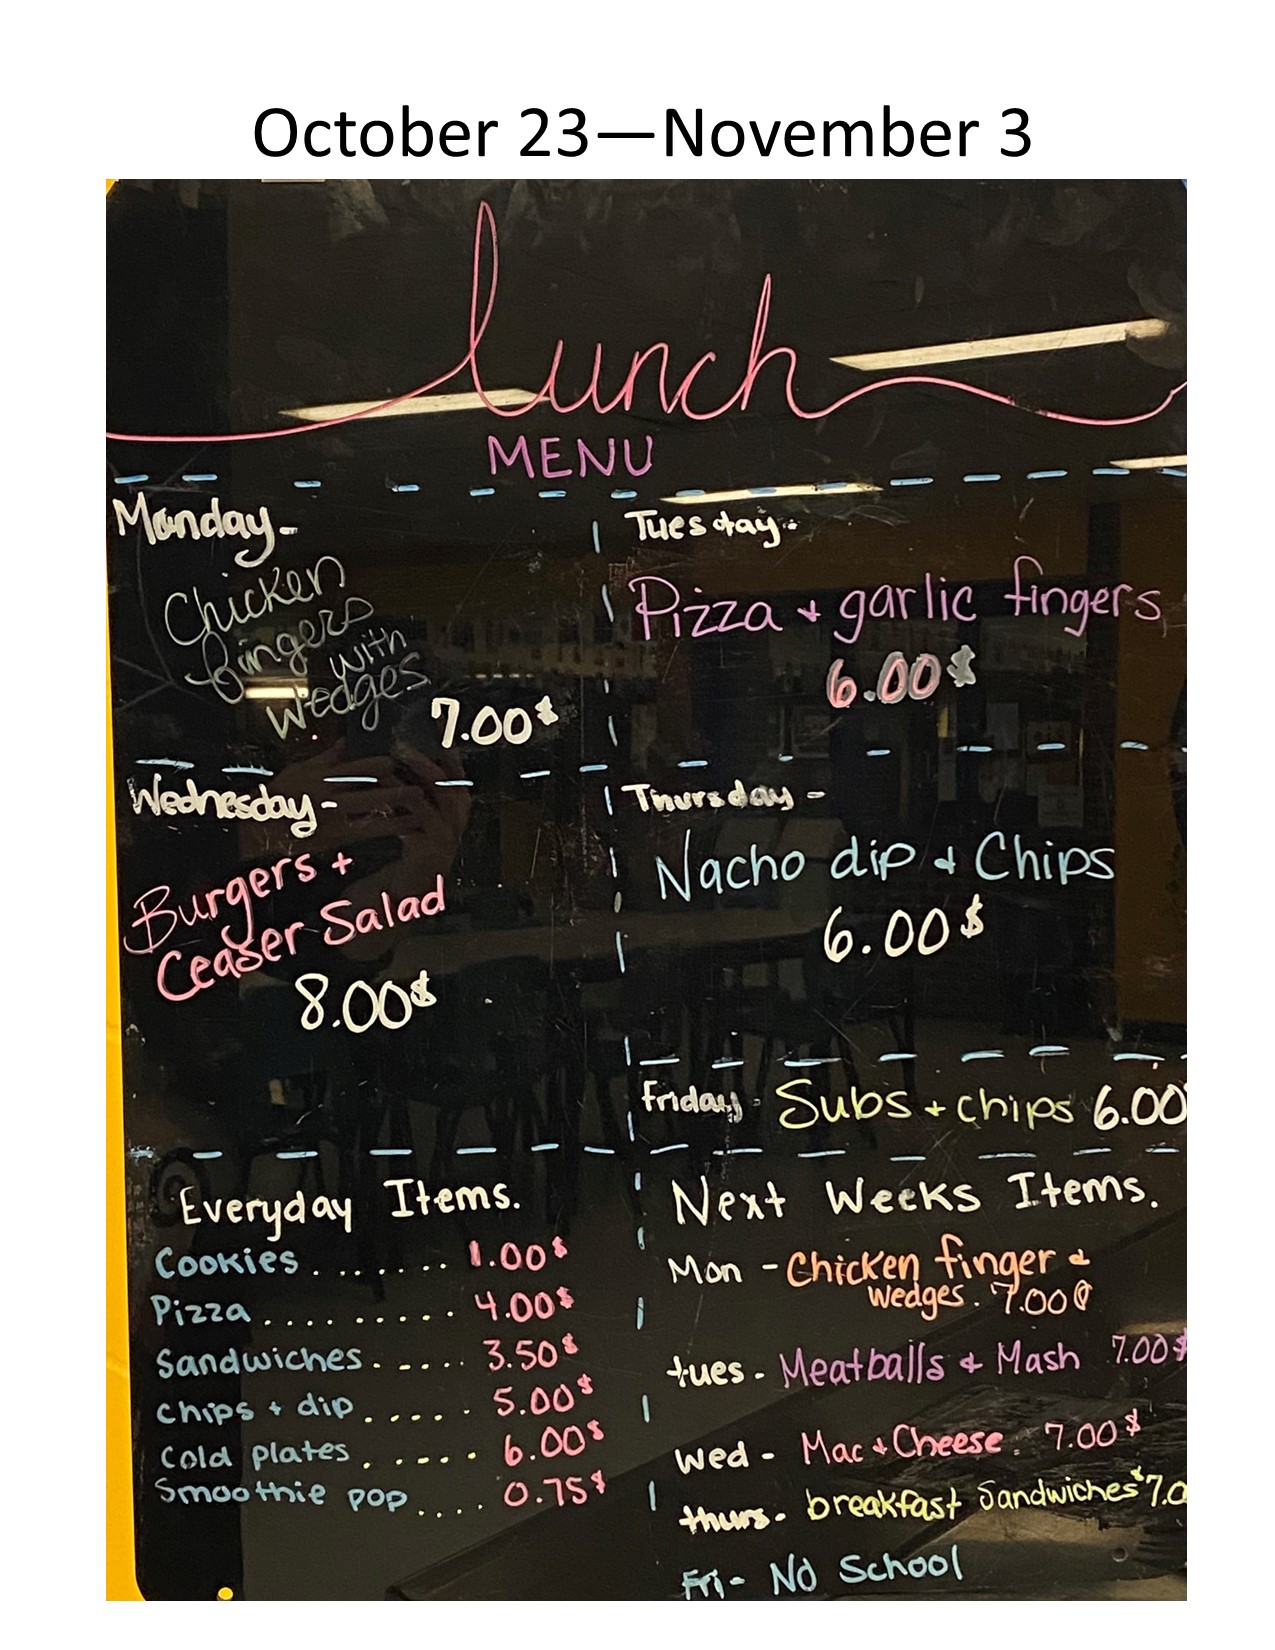 October 23—November 3
lunch
MENU
Monday-
Chicken
fingers
with
wedges
7.00$
Tuesday-
Pizza + garlic fingers
6.00$
Wednesday-
Burgers +
Ceaser Salad
8.00$
Thursday-
Nacho dip + Chips
6.00$
Friday- Subs + chips 6.00
Everyday Items.
Cookies ....... 1.00$
Pizza ......... 4.00$
Sandwiches ..... 3.50$
chips + dip ..... 5.00$
Cold plates ..... 6.00$
Smoothie pop .... 0.75$
Next Weeks Items.
Mon - Chicken finger +
wedges. 7.00$
tues - Meatballs + Mash 7.00$
Wed - Mac + Cheese. 7.00$
thurs - breakfast Sandwiches 7.0
Fri - No School